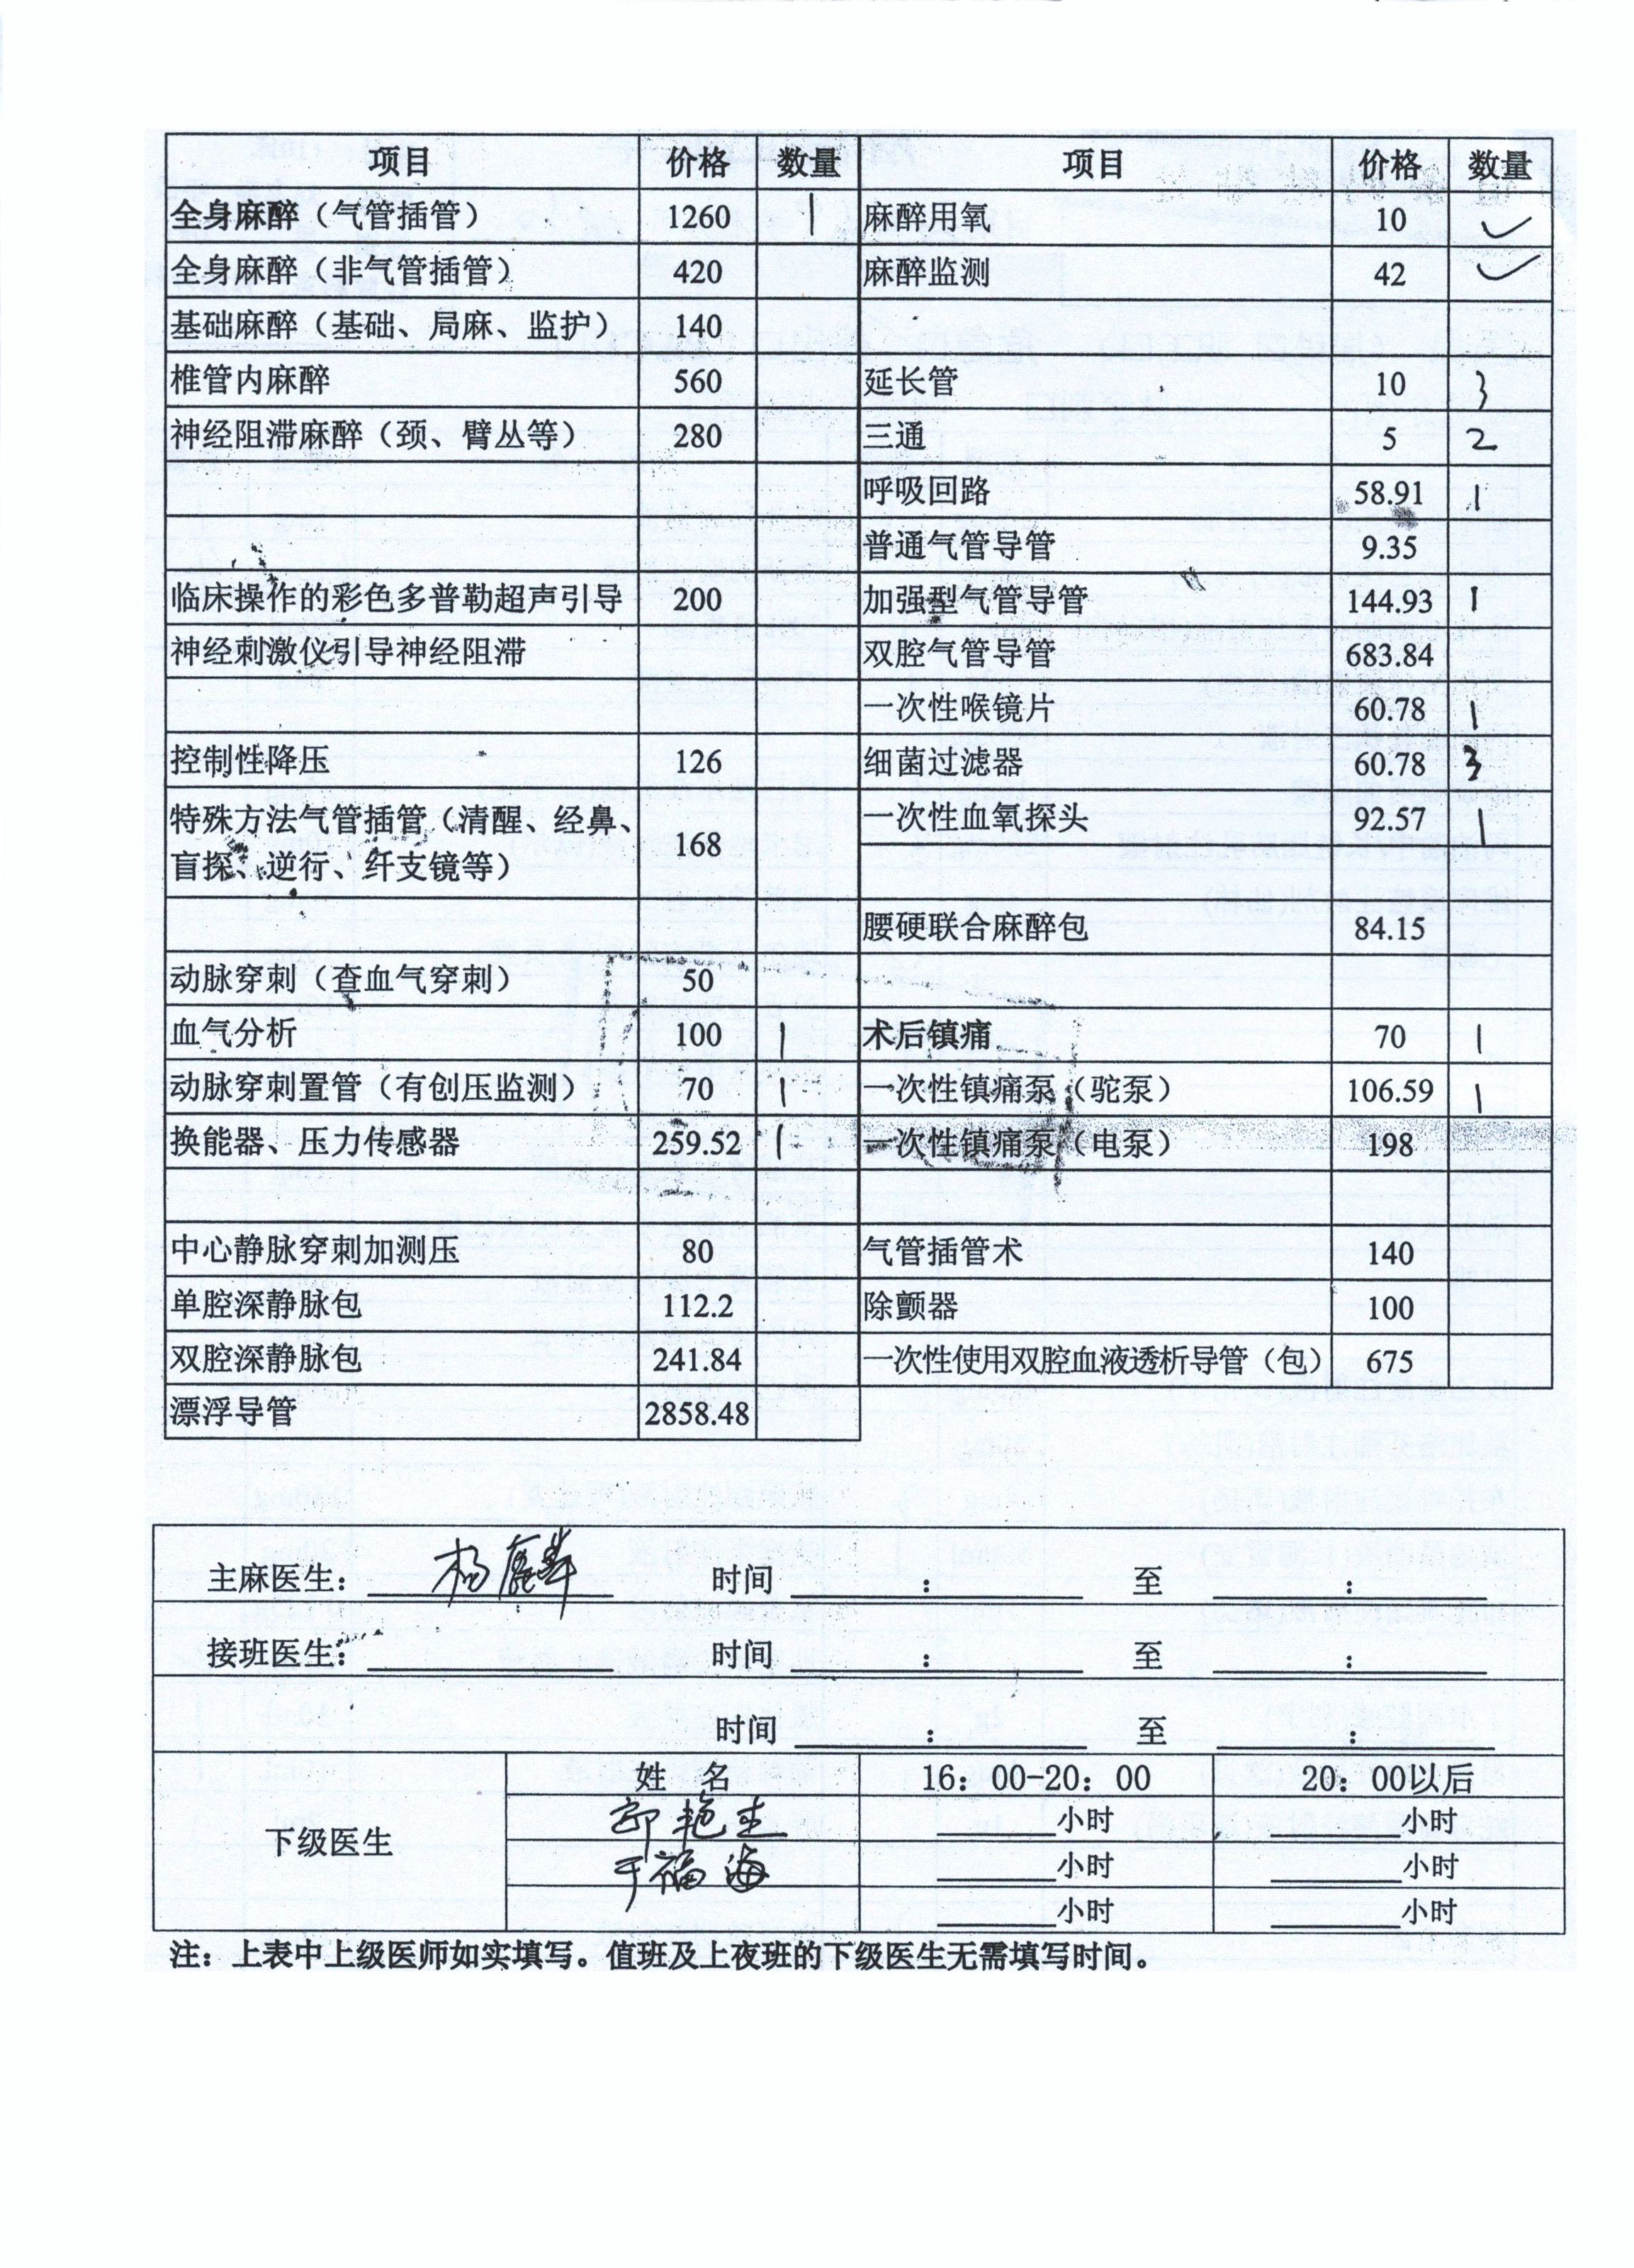 项目 价格 数量 项目 价格 数量
全身麻醉（气管插管） 1260 1 麻醉用氧 10 ✓
全身麻醉（非气管插管） 420 麻醉监测 42 ✓
基础麻醉（基础、局麻、监护） 140
椎管内麻醉 560 延长管 10 3
神经阻滞麻醉（颈、臂丛等） 280 三通 5 2
呼吸回路 58.91 1
普通气管导管 9.35
临床操作的彩色多普勒超声引导 200 加强型气管导管 144.93 1
神经刺激仪引导神经阻滞 双腔气管导管 683.84
一次性喉镜片 60.78 1
控制性降压 126 细菌过滤器 60.78 3
特殊方法气管插管（清醒、经鼻、 168 一次性血氧探头 92.57 1
盲探、逆行、纤支镜等）
腰硬联合麻醉包 84.15
动脉穿刺（查血气穿刺） 50
血气分析 100 1 术后镇痛 70 1
动脉穿刺置管（有创压监测） 70 1 一次性镇痛泵（驼泵） 106.59 1
换能器、压力传感器 259.52 1 一次性镇痛泵（电泵） 198
中心静脉穿刺加测压 80 气管插管术 140
单腔深静脉包 112.2 除颤器 100
双腔深静脉包 241.84 一次性使用双腔血液透析导管（包） 675
漂浮导管 2858.48
主麻医生： 杨 时间 ： 至 ：
接班医生： 时间 ： 至 ：
时间 ： 至 ：
姓 名 16：00-20：00 20：00以后
下级医生 艳 小时 小时
于福海 小时 小时
小时 小时
注：上表中上级医师如实填写。值班及上夜班的下级医生无需填写时间。